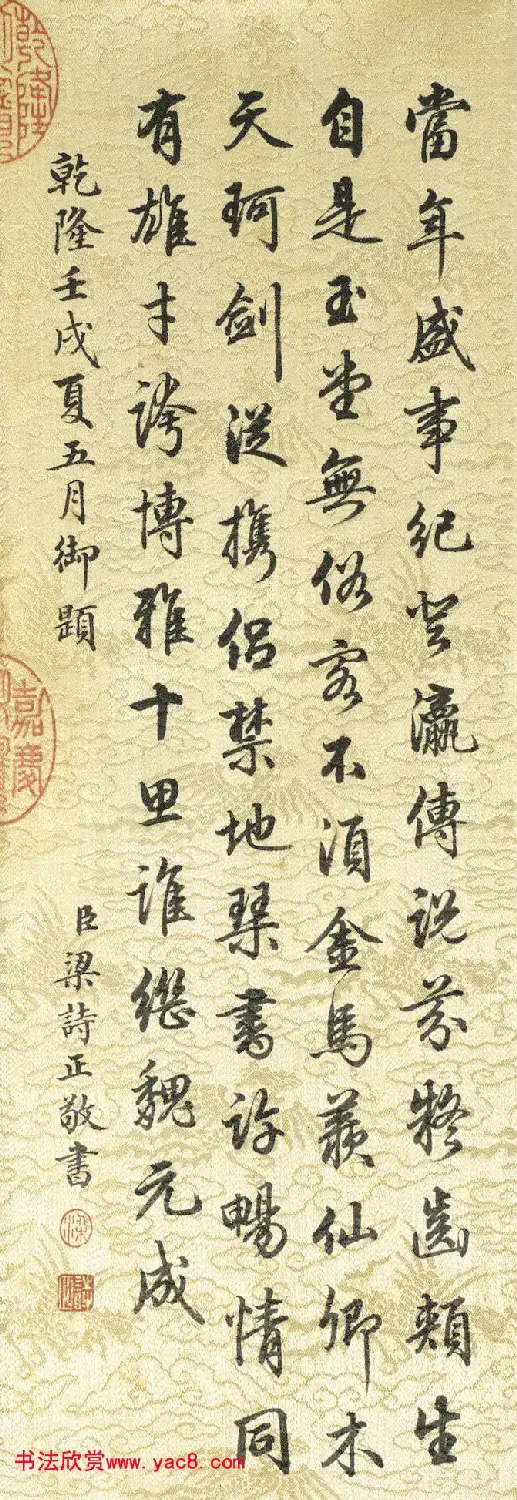 當年盛事紀登瀛傳說芬齒頰生
自是玉堂無俗客不須金馬羨仙卿木
天珂劍從攜侶禁地琹書許暢情同
有雄才誇博雅十思誰繼魏元成
乾隆壬戌夏五月御題
臣梁詩正敬書
乾隆
嘉慶
梁
书法欣赏www.yac8.com